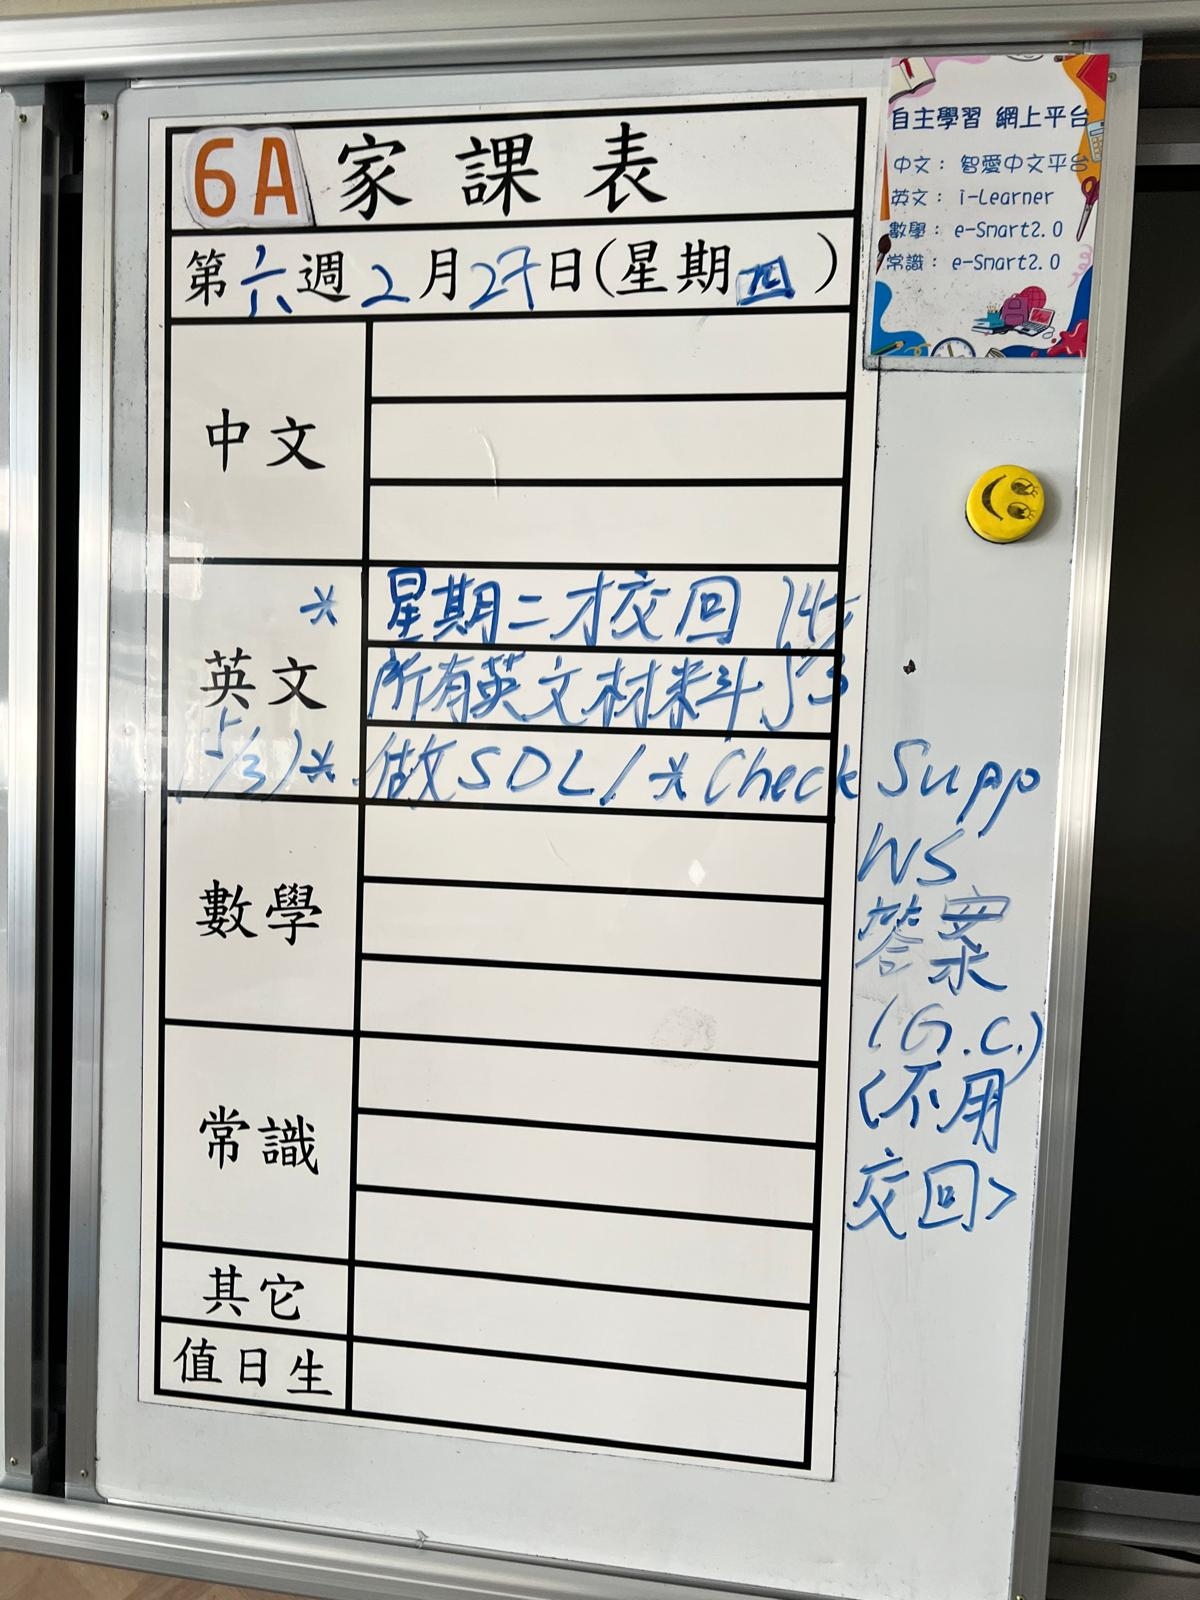 6A 家課表
第六週2月27日(星期四)
中文
英文
* 星期二才交回
所有英文材料
(5/3)* 做SDL / * Check Supp
WS
答案
(G.C.)
<不用
交回>
數學
常識
其它
值日生
自主學習 網上平台
中文：智愛中文平台
英文：i-Learner
數學：e-Smart2.0
常識：e-Smart2.0